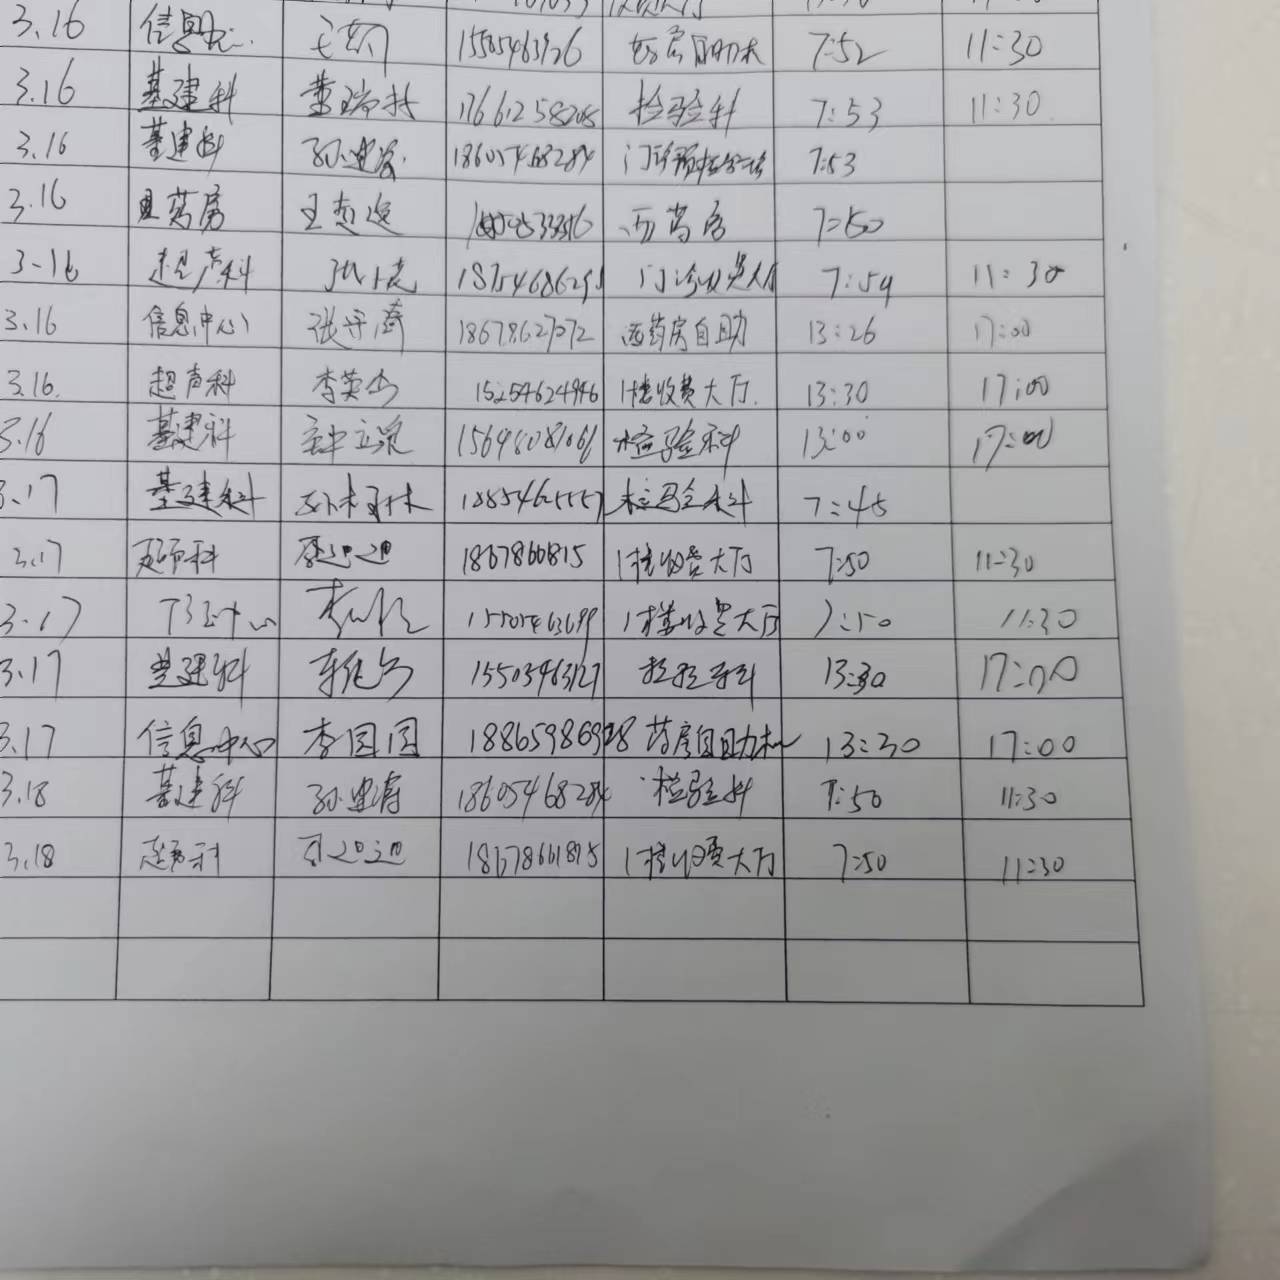 3.16 信息中心 15505463926 药房自助机 7:52 11:30
3.16 基建科 董瑞彬 17661258205 检验科 7:53 11:30
3.16 基建科 孙建 18605468284 门诊预检分诊 7:53
3.16 西药房 王 西药房 7:50
3.16 超声科 18754686291 门诊收费大厅 7:59 11:30
3.16 信息中心 张守涛 18678627272 西药房自助 13:26 17:00
3.16. 超声科 李英杰 15254624946 1楼收费大厅. 13:30 17:00
3.16 基建科 15698081061 检验科 13:00 17:00
3.17 基建科 孙 检验科 7:45
3.17 超声科 1867860815 1楼收费大厅 7:50 11:30
3.17 15505463699 1楼收费大厅 7:50 11:30
3.17 基建科 15505463127 检验科 13:30 17:00
3.17 信息中心 李园园 18865986928 药房自助机 13:30 17:00
3.18 基建科 孙建 18605468284 检验科 7:50 11:30
3.18 超声科 18678601815 1楼收费大厅 7:50 11:30